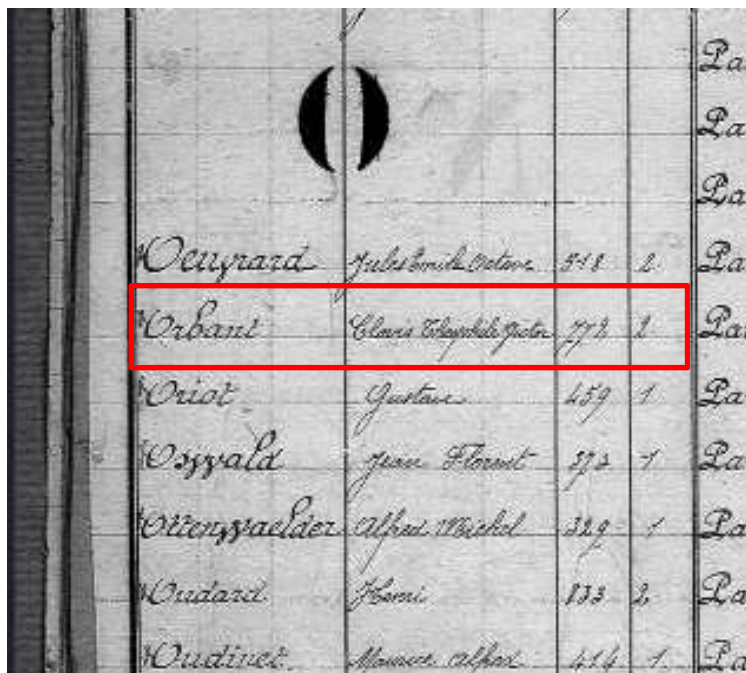 O
Pa
Pa
Pa
Oeuvrard Jules Emile Octave 518 2 Pa
Orbant Clovis Théophile Victor 772 2 Pa
Oriot Gustave 459 1 Pa
Oswald Jean Florent 373 1 Pa
Ottenwaelder Alfred Michel 329 1 Pa
Oudard Henri 833 2 Pa
Oudinet Maurice Alfred 414 1 Pa